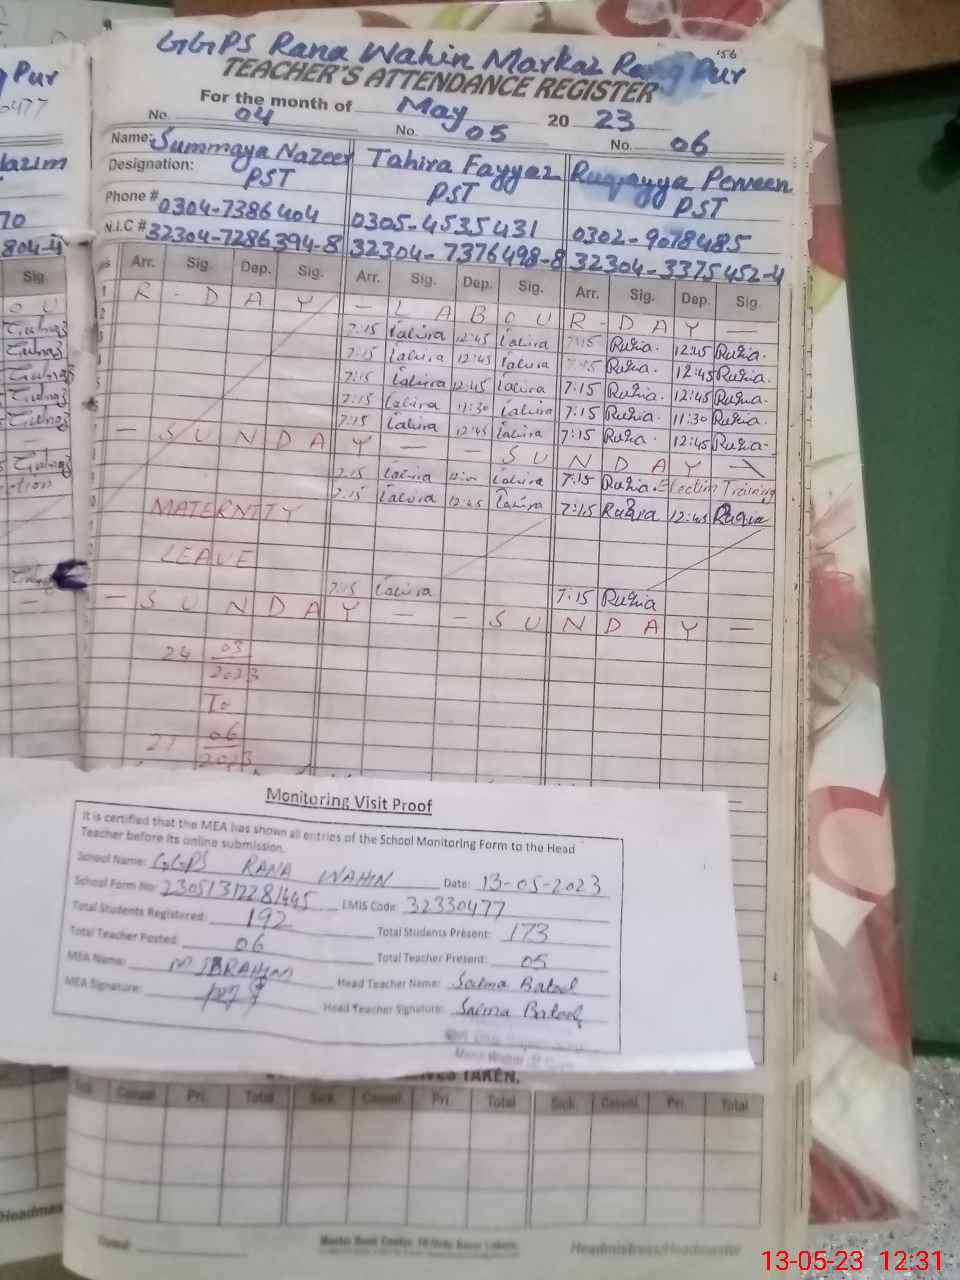 156
GGPS Rana Wahin Markaz Rang Pur
TEACHER'S ATTENDANCE REGISTER
For the month of May 20 23
No. 04 No. 05 No. 06
Name: Summaya Nazeer Tahira Fayyaz Ruqayya Perveen
Designation: PST PST PST
Phone # 0304-7386404 0305-4535431 0302-9078485
N.I.C # 32304-7286394-8 32304-7376498-8 32304-3375452-4
Arr. Sig. Dep. Sig. Arr. Sig. Dep. Sig. Arr. Sig. Dep. Sig.
R - DAY - LABOUR - DAY -
7:15 12:45 7:15 12:45
7:15 12:45 7:15 12:45
7:15 12:45 7:15 12:45
7:15 11:30 7:15 11:30
7:15 12:45 7:15 12:45
- SUNDAY - - SUNDAY -
7:15 7:15 Election Training
7:15 12:45 7:15 12:45
MATERNITY
LEAVE
7:15 7:15
- SUNDAY - - SUNDAY -
24 03
2023
To
21 06
2023
Monitoring Visit Proof
It is certified that the MEA has shown all entries of the School Monitoring Form to the Head
Teacher before its online submission.
School Name: GGPS RANA WAHIN Date: 13-05-2023
School Form No: 23051312281445 EMIS Code: 32330477
Total Students Registered: 192 Total Students Present: 173
Total Teacher Posted: 06 Total Teacher Present: 05
MEA Name: M IBRAHIM Head Teacher Name: Salma Batool
MEA Signature: Head Teacher Signature: Salma Batool
TAKEN.
Sick Casual Pri. Total Sick Casual Pri. Total Sick Casual Pri. Total
Dated:
Headmistress/Headmaster
Pur
0477
70
804-4
Sig.
OU
13-05-23 12:31